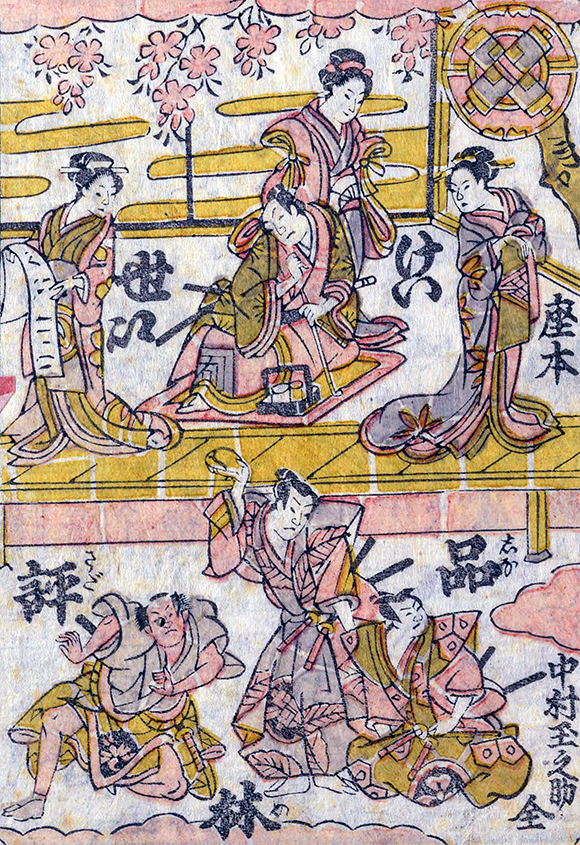 座本
けい
世
品
しな
評
さだ
の
林
中村玉之助
全